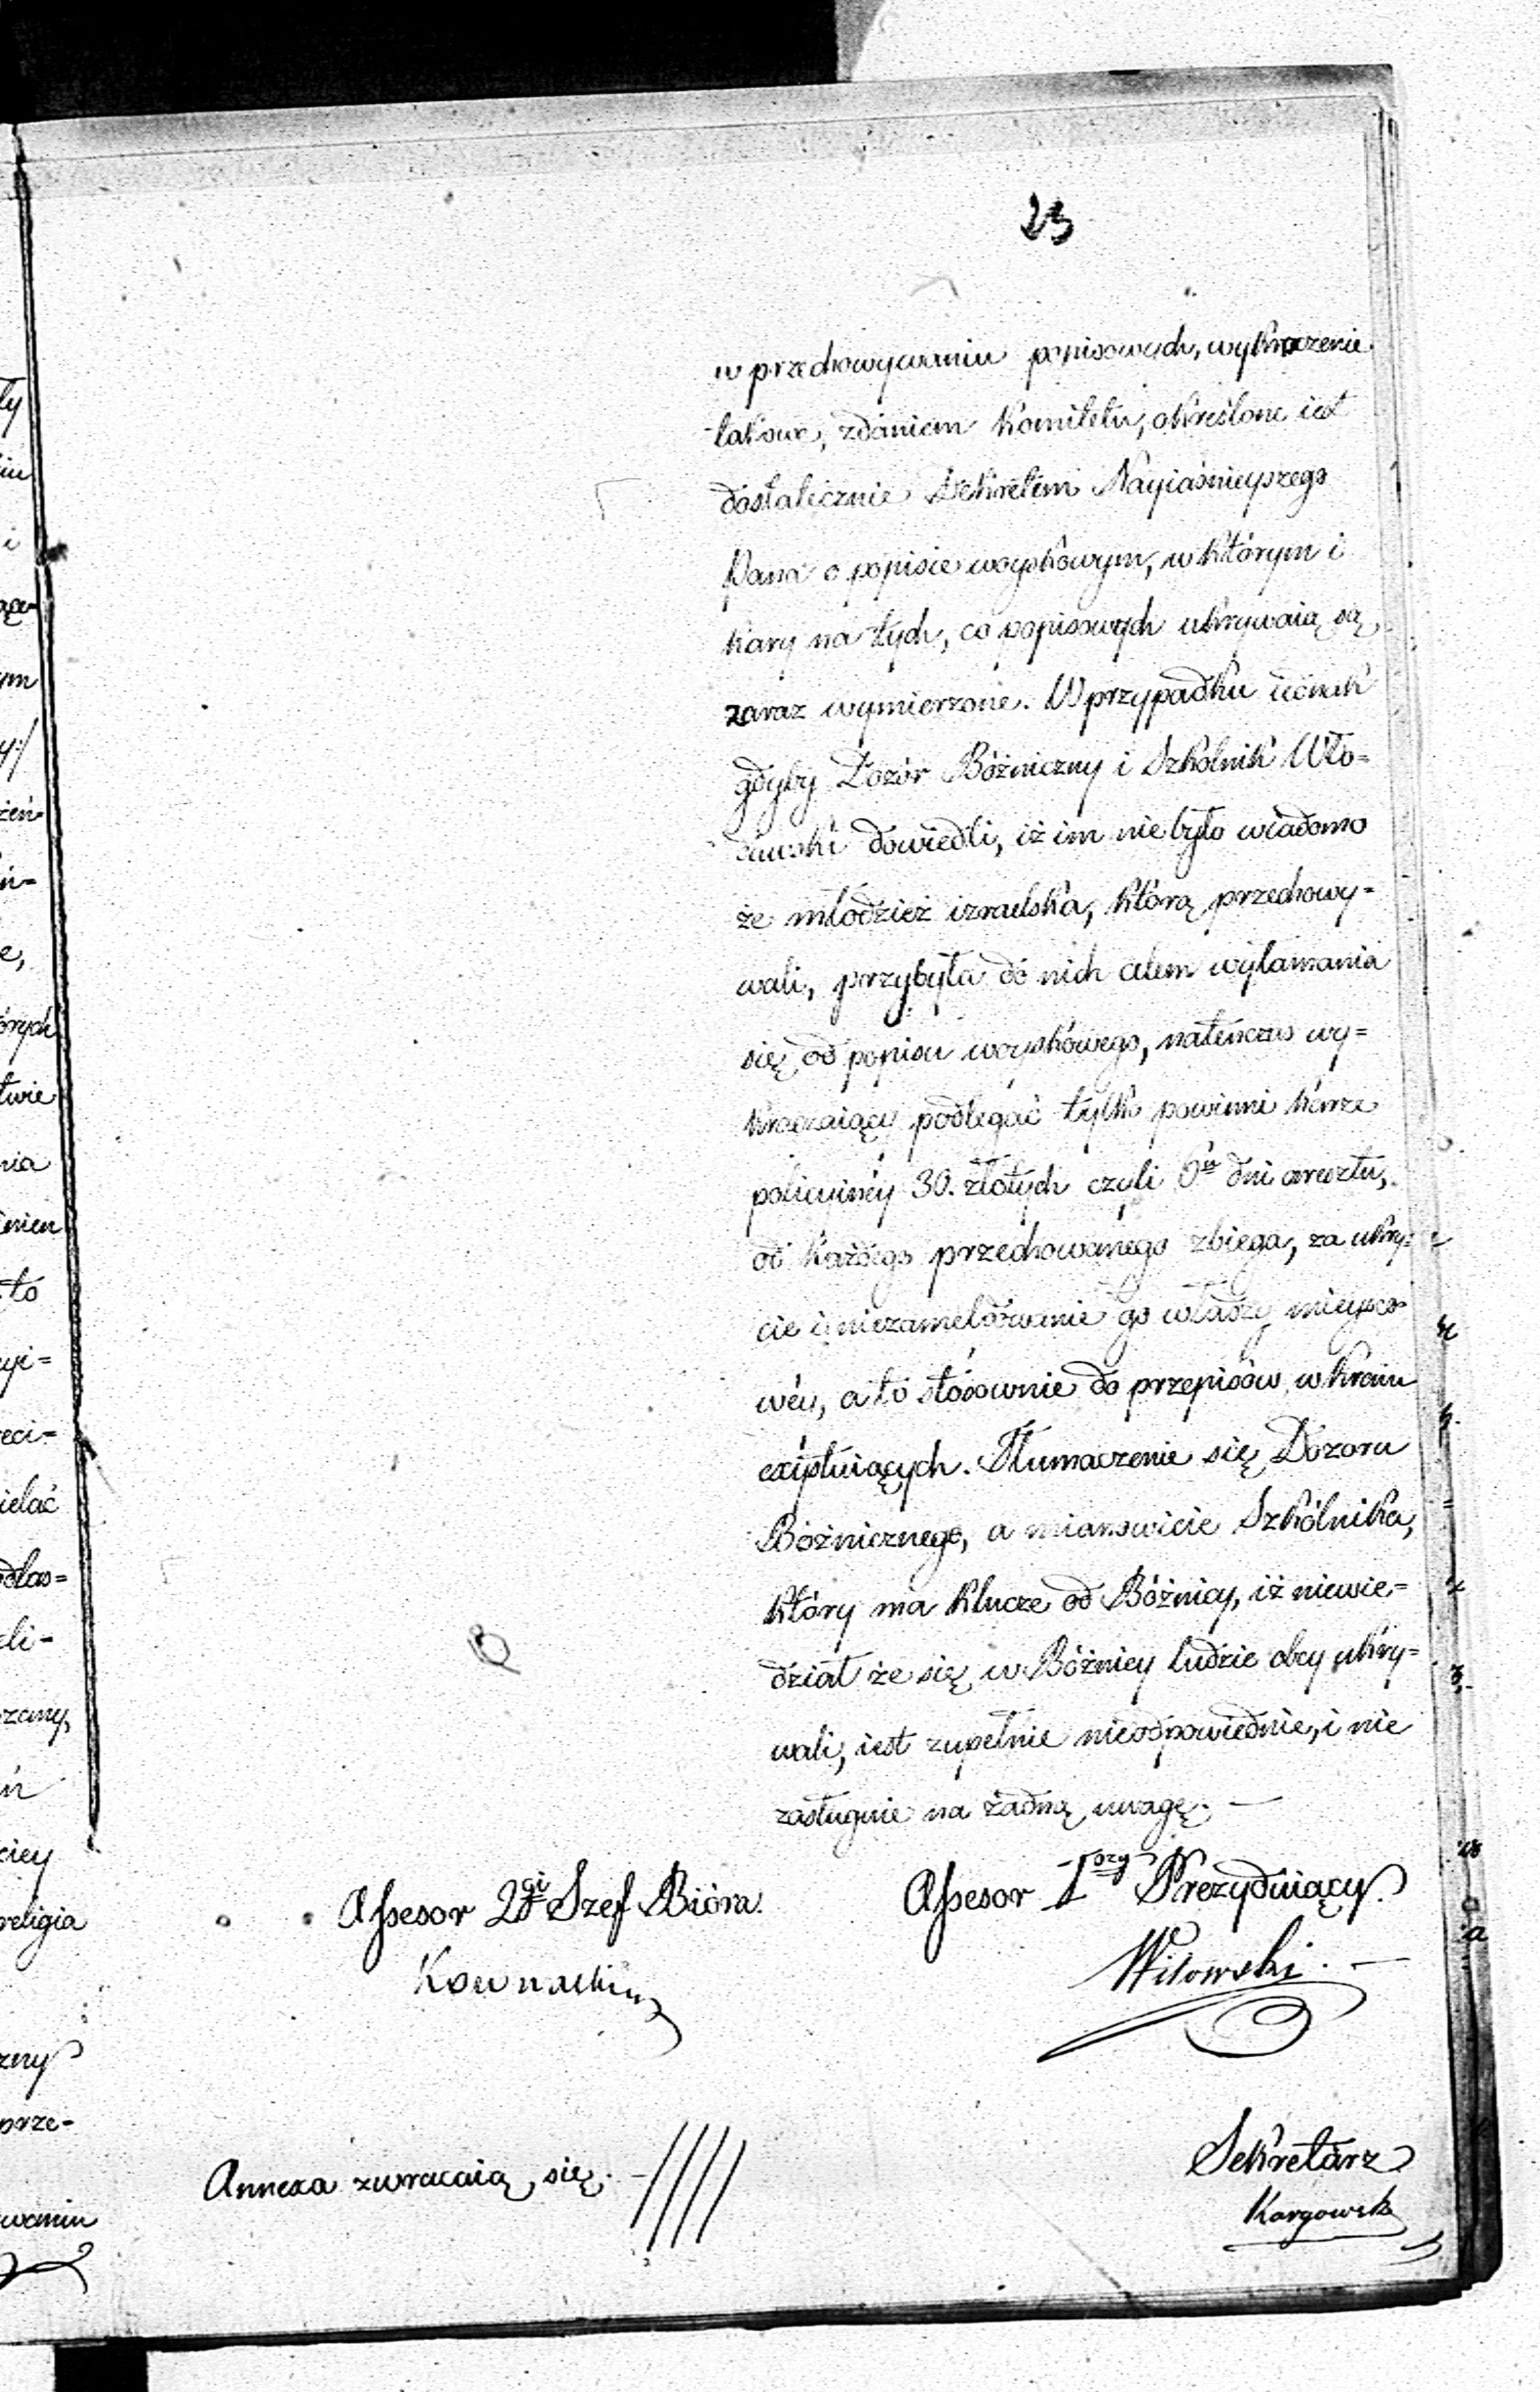 23
w przechowywaniu popisowych, wykroczenie
takowe, zdaniem Komitetu, określone iest
dostatecznie Dekretem Nayiaśnieyszego
Pana o popisie woyskowym, w którym i
kary na tych, co popisowych ukrywaią są
zaraz wymierzone. W przypadku iednak
gdyby Dozór Bóżniczny i Szkolnik Wło=
dawski dowiedli, iż im nie było wiadomo
że młodzież izraelska, którą przechowy=
wali, przybyła do nich celem wyłamania
się od popisu woyskowego, natenczas wy=
kraczaiący podlegać tylko powinni karze
policyiney 30. złotych czyli dni aresztu,
od każdego przechowanego zbiega, za ukry=
cie i niezameldowanie go władzy mieysco
wéy, a to stósownie do przepisów w kraiu
exystuiących. Tłumaczenie się Dozoru
Bóżnicznego, a mianowicie Szkólnika,
który ma klucze od Bóżnicy, iż niewie=
dział że się w Bóżnicy ludzie obcy ukry=
wali, iest zupełnie nieodpowiednie, i nie
zasługuie na żadną uwagę. —
Assesor 2gi Szef Bióra. Assesor 1szy Prezyduiący.
Witowski. —
Sekretarz
Annexa zwracaią się. —